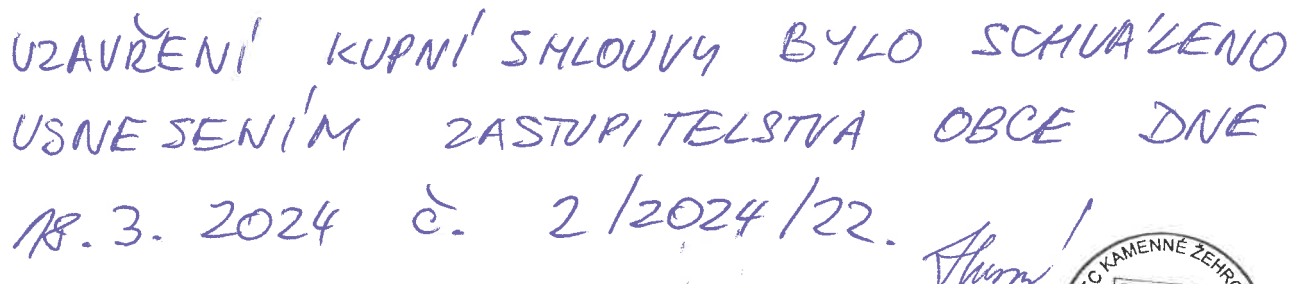 UZAVŘENÍ KUPNÍ SMLOUVY BYLO SCHVÁLENO
USNESENÍM ZASTUPITELSTVA OBCE DNE
18. 3. 2024 č. 2/2024/22.
KAMENNÉ